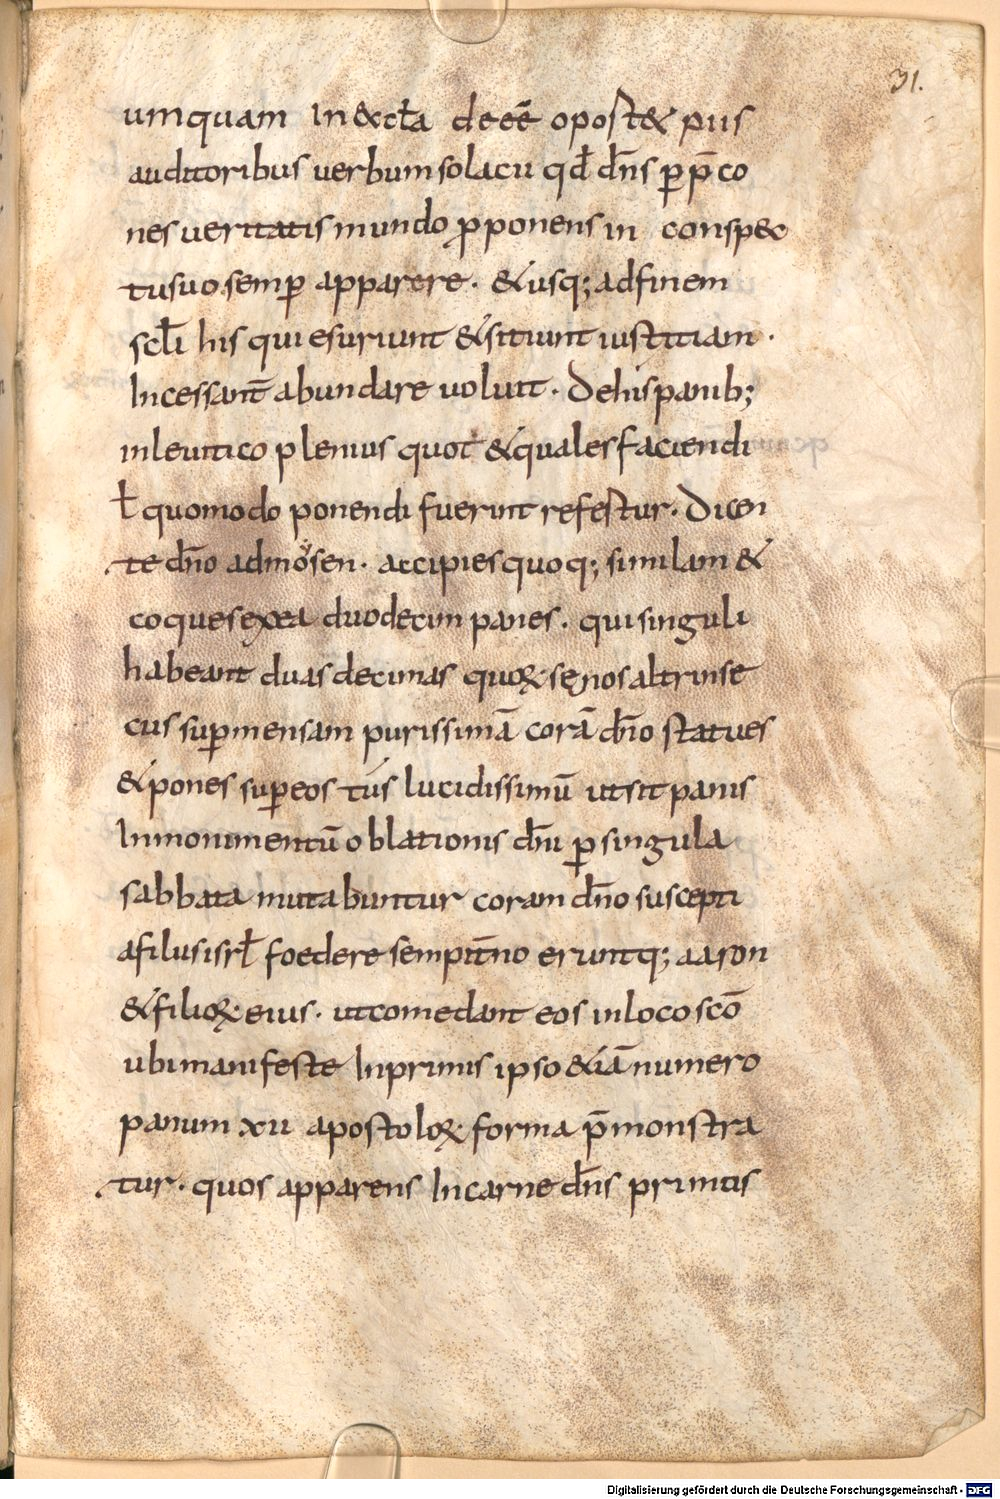 31.
umquam in &ccl̄a deeē oport& piis
auditoribus verbum solacii qđ dn̄s p̱ p̄co
nes veritatis mundo p̱ponens in conspec
tu suo semp̱ apparere. & usq; ad finem
scl̄i his qui esuriunt & sitiunt iustitiam.
Incessant̄ abundare voluit. De his panib;
in levitico plenius quot & quales faciendi
ł quomodo ponendi fuerint refertur. Dicen
te dn̄o ad moysen. accipies quoq; similam &
coques ex ea duodecim panes. qui singuli
habeant duas decimas quoꝝ senos altrinse
cus sup̱ mensam purissimā corā dn̄o statues
& pones sup̱ eos tus lucidissimū ut sit panis
In monimentū oblationis dn̄i p̱ singula
sabbata mutabuntur coram dn̄o suscepti
a filiis isrł foedere sempit̄no eruntq; aaron
& filioꝝ eius. ut comedant eos in loco scō
ubi manifeste In primis ipso &iā numero
panum xii apostoloꝝ forma p̄monstra
tur. quos apparens In carne dn̄s primitis
Digitalisierung gefördert durch die Deutsche Forschungsgemeinschaft - DFG